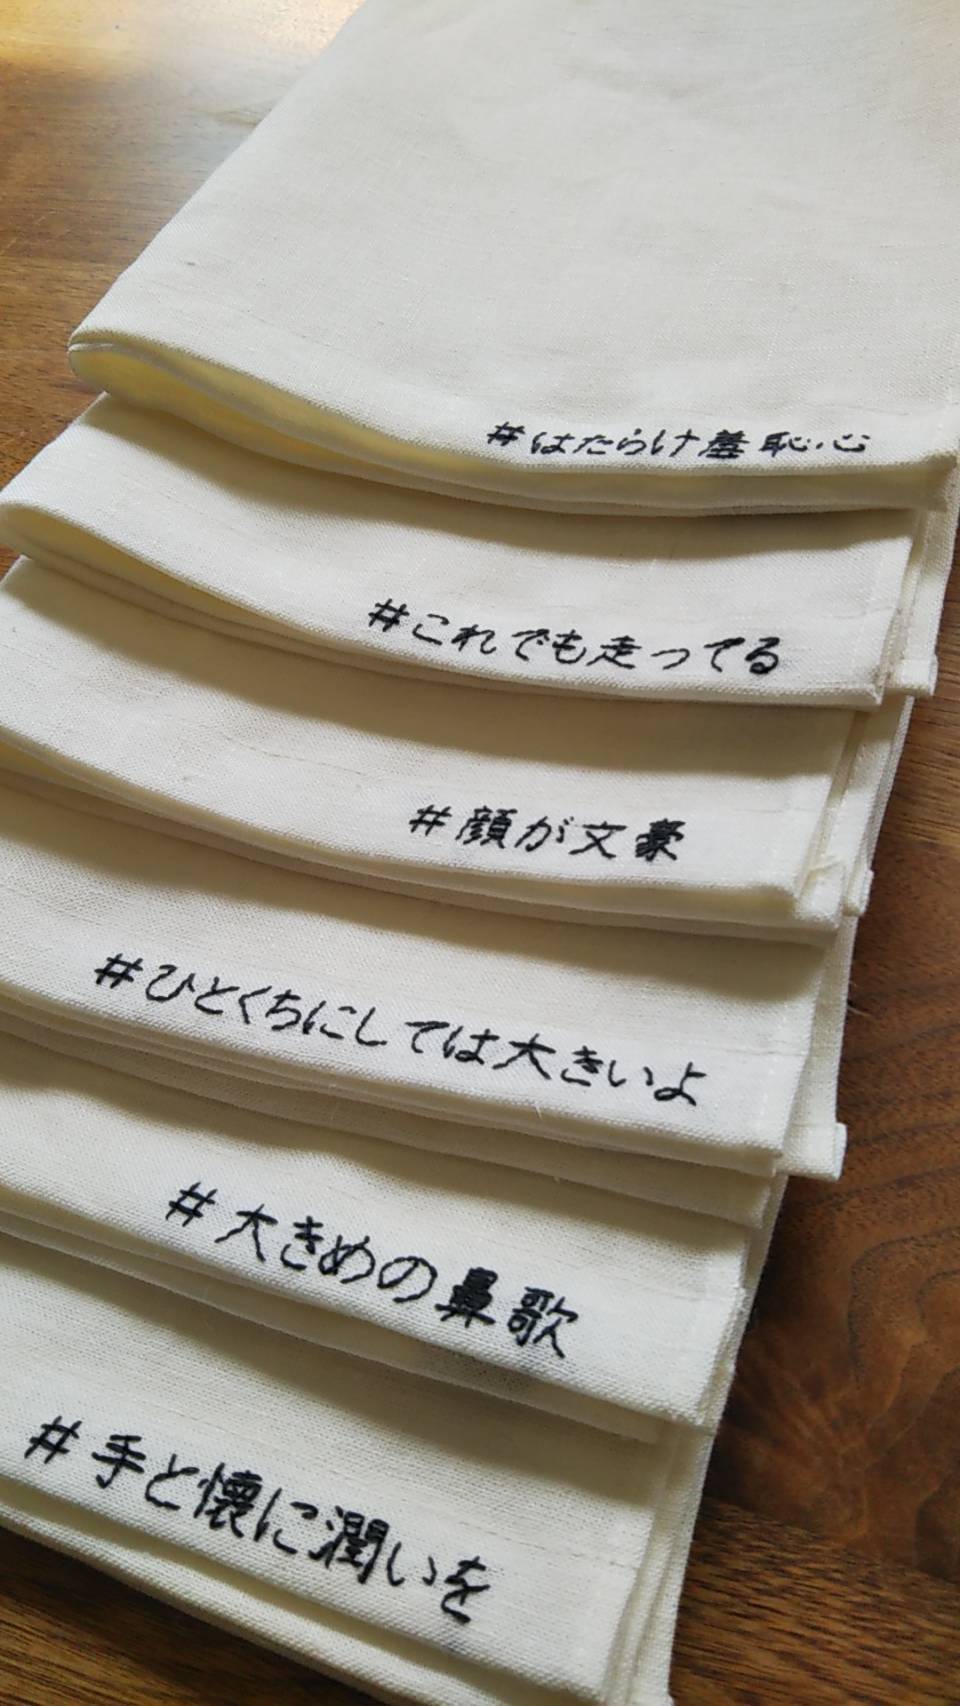 #はたらけ羞恥心
#これでも走ってる
#顔が文豪
#ひとくちにしては大きいよ
#大きめの鼻歌
#手と懐に潤いを